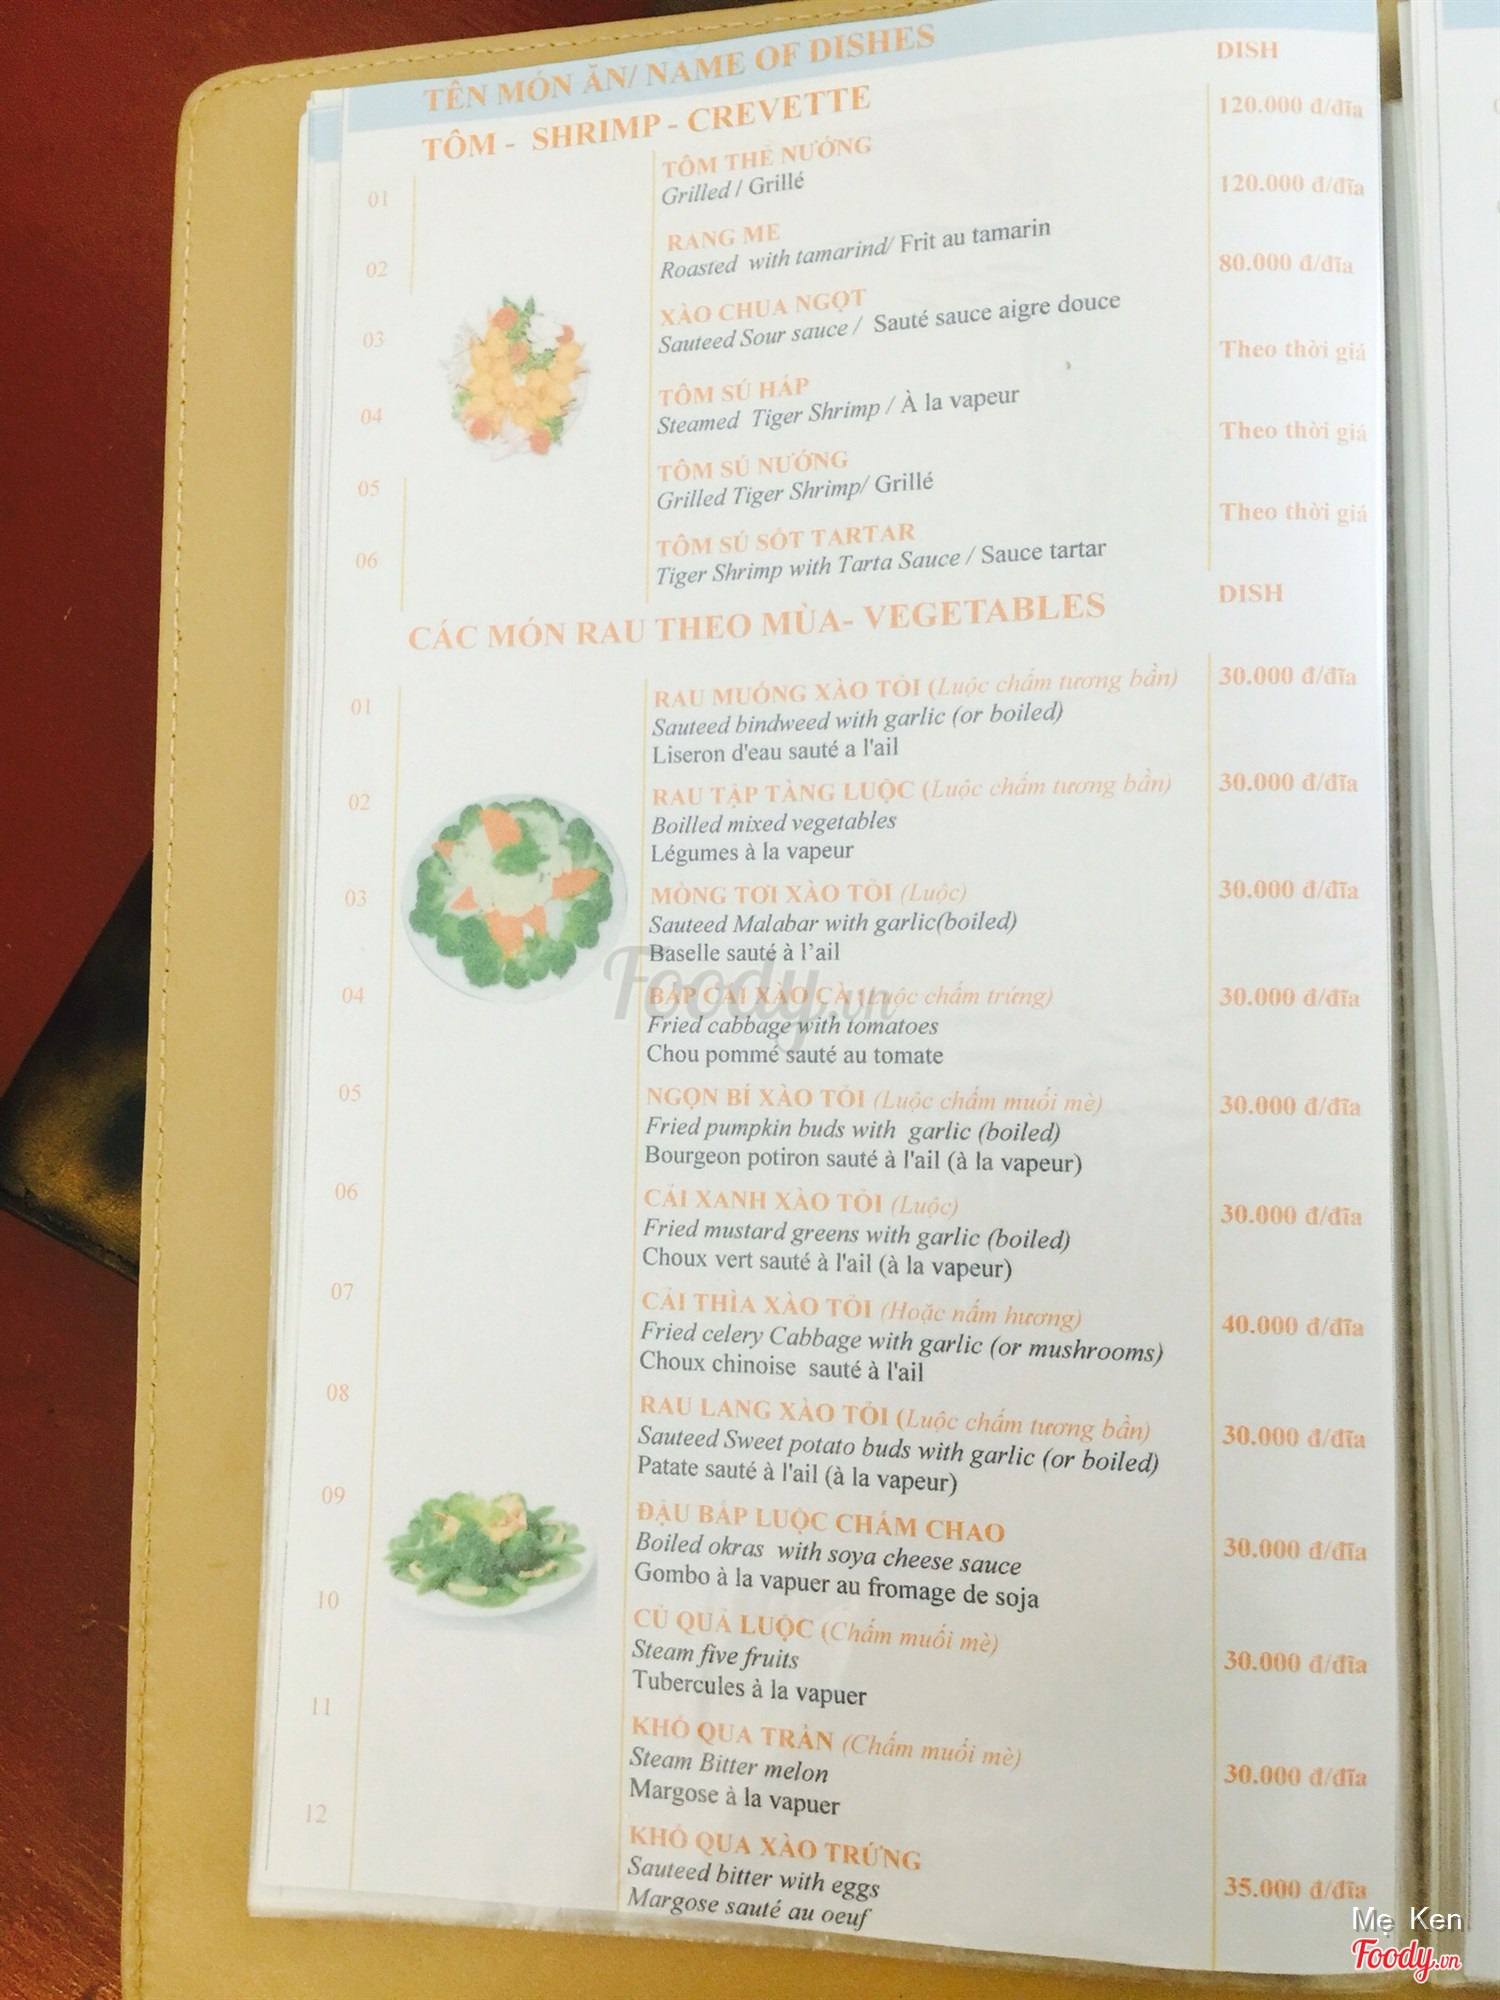 TÊN MÓN ĂN/ NAME OF DISHES
DISH
TÔM - SHRIMP - CREVETTE
01
TÔM THẺ NƯỚNG
120.000 đ/đĩa
Grilled / Grillé
02
RANG ME
120.000 đ/đĩa
Roasted with tamarind/ Frit au tamarin
03
XÀO CHUA NGỌT
80.000 đ/đĩa
Sauteed Sour sauce / Sauté sauce aigre douce
04
TÔM SÚ HẤP
Theo thời giá
Steamed Tiger Shrimp / À la vapeur
05
TÔM SÚ NƯỚNG
Theo thời giá
Grilled Tiger Shrimp/ Grillé
06
TÔM SÚ SỐT TARTAR
Theo thời giá
Tiger Shrimp with Tarta Sauce / Sauce tartar
CÁC MÓN RAU THEO MÙA- VEGETABLES
DISH
01
RAU MUỐNG XÀO TỎI (Luộc chấm tương bần)
30.000 đ/đĩa
Sauteed bindweed with garlic (or boiled)
Liseron d'eau sauté a l'ail
02
RAU TẬP TÀNG LUỘC (Luộc chấm tương bần)
30.000 đ/đĩa
Boilled mixed vegetables
Légumes à la vapeur
03
MÒNG TƠI XÀO TỎI (Luộc)
30.000 đ/đĩa
Sauteed Malabar with garlic(boiled)
Baselle sauté à l'ail
04
BẮP CẢI XÀO CÀ (Luộc chấm trứng)
30.000 đ/đĩa
Fried cabbage with tomatoes
Chou pommé sauté au tomate
05
NGỌN BÍ XÀO TỎI (Luộc chấm muối mè)
30.000 đ/đĩa
Fried pumpkin buds with garlic (boiled)
Bourgeon potiron sauté à l'ail (à la vapeur)
06
CẢI XANH XÀO TỎI (Luộc)
30.000 đ/đĩa
Fried mustard greens with garlic (boiled)
Choux vert sauté à l'ail (à la vapeur)
07
CẢI THÌA XÀO TỎI (Hoặc nấm hương)
40.000 đ/đĩa
Fried celery Cabbage with garlic (or mushrooms)
Choux chinoise sauté à l'ail
08
RAU LANG XÀO TỎI (Luộc chấm tương bần)
30.000 đ/đĩa
Sauteed Sweet potato buds with garlic (or boiled)
Patate sauté à l'ail (à la vapeur)
09
ĐẬU BẮP LUỘC CHẤM CHAO
30.000 đ/đĩa
Boiled okras with soya cheese sauce
Gombo à la vapuer au fromage de soja
10
CỦ QUẢ LUỘC (Chấm muối mè)
30.000 đ/đĩa
Steam five fruits
Tubercules à la vapuer
11
KHỔ QUA TRẦN (Chấm muối mè)
30.000 đ/đĩa
Steam Bitter melon
Margose à la vapuer
12
KHỔ QUA XÀO TRỨNG
35.000 đ/đĩa
Sauteed bitter with eggs
Margose sauté au oeuf
Foody.vn
Mẹ Ken
Foody.vn